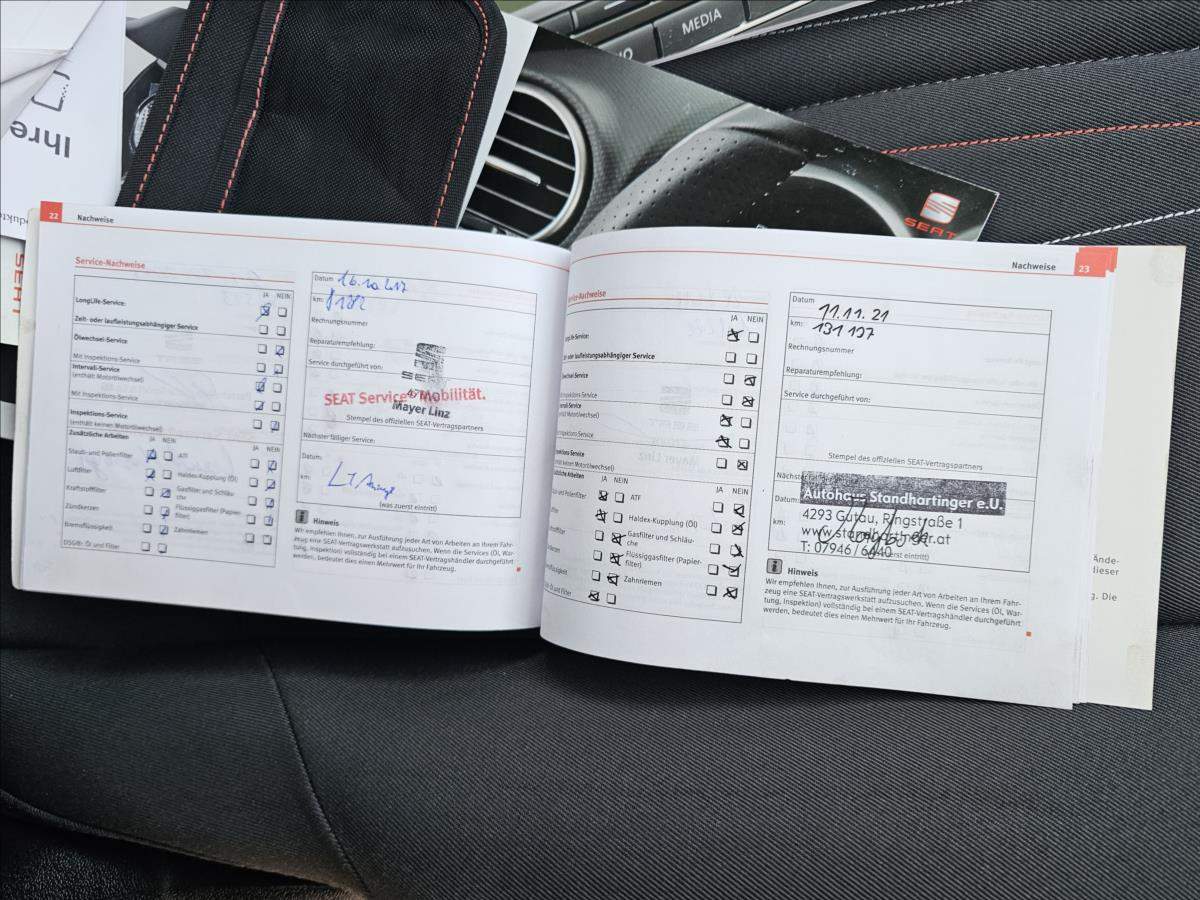 MEDIA
Ihre
SEAT
SEAT
22
Nachweise
Service-Nachweise
JA NEIN
LongLife-Service:
Zeit- oder laufleistungsabhängiger Service
Ölwechsel-Service:
Mit Inspektions-Service
Intervall-Service
(enthält Motorölwechsel)
Mit Inspektions-Service
Inspektions-Service
(enthält keinen Motorölwechsel)
Zusätzliche Arbeiten
JA NEIN
JA NEIN
Staub- und Pollenfilter
ATF
Luftfilter
Haldex-Kupplung (Öl)
Kraftstofffilter
Gasfilter und Schläu-
che
Zündkerzen
Flüssiggasfilter (Papier-
filter)
Bremsflüssigkeit
Zahnriemen
DSG®: Öl und Filter
Datum 16.10.2017
km:
Rechnungsnummer
Reparaturempfehlung:
Service durchgeführt von:
SEAT Service Mobilität.
Mayer Linz
Stempel des offiziellen SEAT-Vertragspartners
Nächster fälliger Service:
Datum:
km:
(was zuerst eintritt)
Hinweis
Wir empfehlen Ihnen, zur Ausführung jeder Art von Arbeiten an Ihrem Fahr-
zeug eine SEAT-Vertragswerkstatt aufzusuchen. Wenn die Services (Öl, War-
tung, Inspektion) vollständig bei einem SEAT-Vertragshändler durchgeführt
werden, bedeutet dies einen Mehrwert für Ihr Fahrzeug.
Nachweise
23
Service-Nachweise
JA NEIN
Service
JA NEIN
JA NEIN
ATF
Haldex-Kupplung (Öl)
Gasfilter und Schläu-
che
Flüssiggasfilter (Papier-
filter)
Zahnriemen
Öl und Filter
Datum 11.11.21
km: 131 197
Rechnungsnummer
Reparaturempfehlung:
Service durchgeführt von:
Stempel des offiziellen SEAT-Vertragspartners
Autohaus Standhartinger e.U.
Datum:
4293 Gutau, Ringstraße 1
km:
www.standhartinger.at
T: 07946 / 6440
Hinweis
Wir empfehlen Ihnen, zur Ausführung jeder Art von Arbeiten an Ihrem Fahr-
zeug eine SEAT-Vertragswerkstatt aufzusuchen. Wenn die Services (Öl, War-
tung, Inspektion) vollständig bei einem SEAT-Vertragshändler durchgeführt
werden, bedeutet dies einen Mehrwert für Ihr Fahrzeug.
Ände-
dieser
g. Die